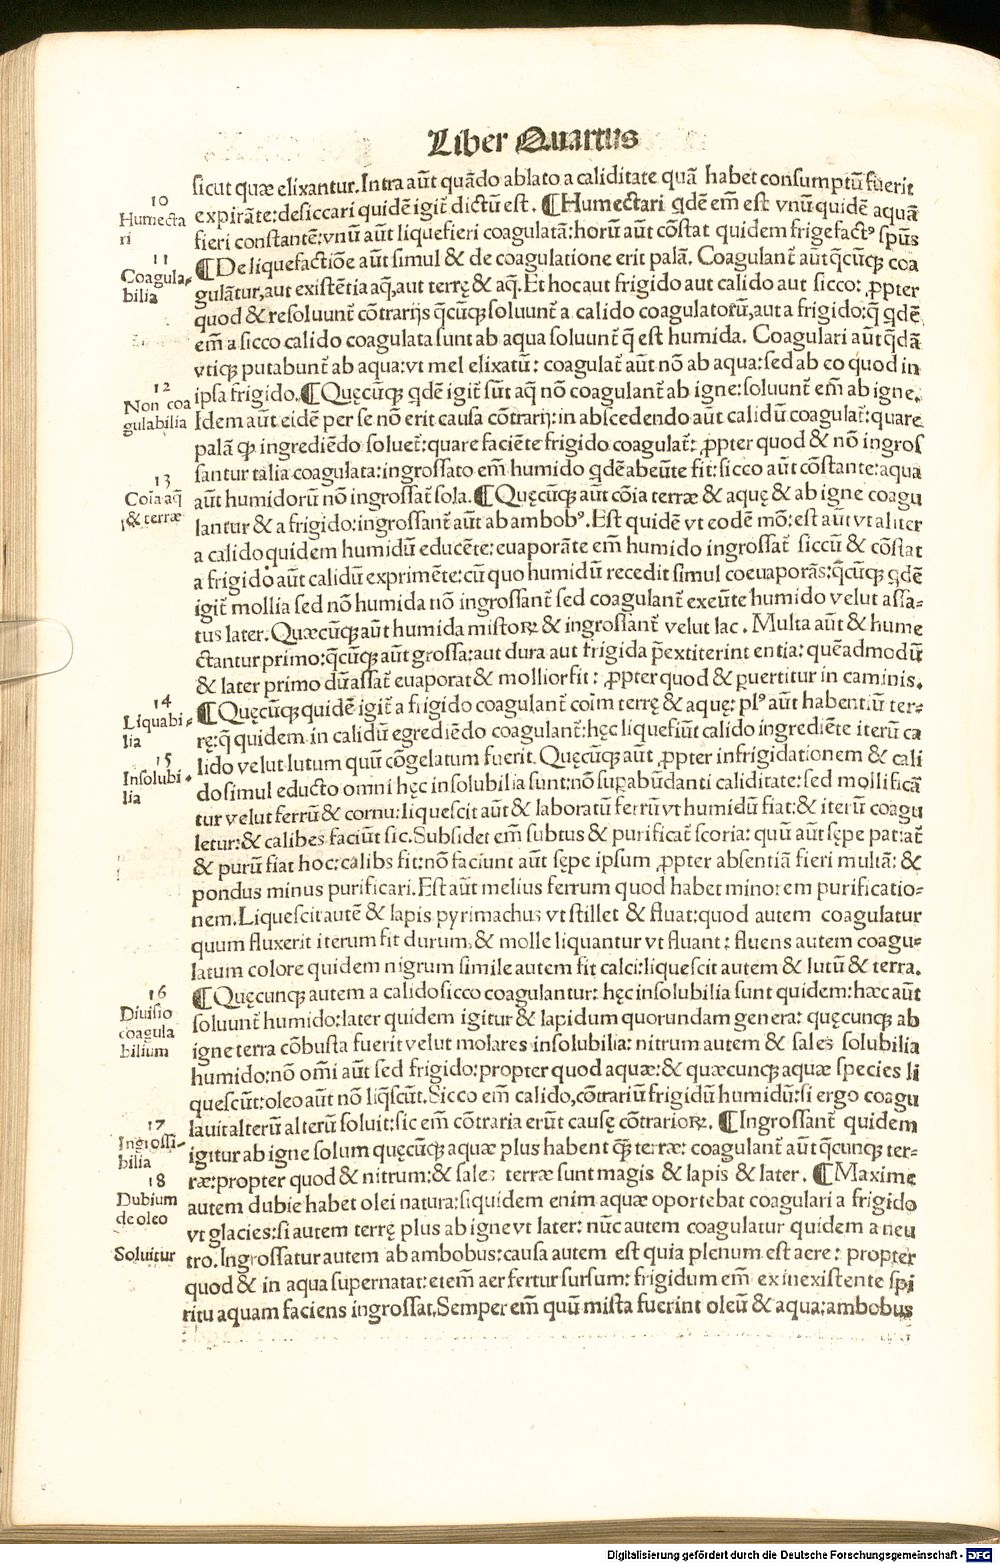 Liber Quartus
sicut quæ elixantur. Intra aūt quādo ablato a caliditate quā habet consumptū fuerit
10
Humecta
ri
expirāte: desiccari quidē igit̄ dictū est. ¶ Humectari qdē em̄ est vnū quidē aquā
fieri constantē: vnū aūt liquefieri coagulatā: horū aūt cōstat quidem frigefactꝰ sp̄us
11
Coagula⸗
bilia
¶ De liquefactiōe aūt simul & de coagulatione erit palā. Coagulant̄ aūt q̄cūqꝫ coa
gulātur, aut existētia aq̄, aut terrę & aq̄. Et hoc aut frigido aut calido aut sicco: ꝓpter
quod & resoluunt̄ cōtrarijs q̄cūqꝫ soluunt̄ a calido coagulatorū, aut a frigido: q̄ qdē
em̄ a sicco calido coagulata sunt ab aqua soluunt̄ q̄ est humida. Coagulari aūt q̄dā
vtiqꝫ putabunt̄ ab aqua: vt mel elixatū: coagulat̄ aūt nō ab aqua: sed ab eo quod in
12
Non coa
gulabilia
ipsa frigido. ¶ Quęcūqꝫ qdē igit̄ sūt aq̄ nō coagulant̄ ab igne: soluunt̄ em̄ ab igne.
Idem aūt eidē per se nō erit causa cōtrarij: in abscedendo aūt calidū coagulat̄: quare
palā ꝙ ingrediēdo soluet̄: quare faciēte frigido coagulat̄: ꝓpter quod & nō ingros
santur talia coagulata: ingrossato em̄ humido qdē abeūte fit: sicco aūt cōstante: aqua
13
Coīa aq̄
& terræ
aūt humidorū nō ingrossat̄ sola. ¶ Quęcūqꝫ aūt cōia terræ & aquę & ab igne coagu
lantur & a frigido: ingrossant̄ aūt ab ambobꝰ. Est quidē vt eodē mō: est aūt vt aliter
a calido quidem humidū educēte: euaporāte em̄ humido ingrossat̄ siccū & cōstat
a frigido aūt calidū exprimēte: cū quo humidū recedit simul coeuaporās: q̄cūqꝫ qdē
igit̄ mollia sed nō humida nō ingrossant̄ sed coagulant̄ exeūte humido velut assa⸗
tus later. Quæcūqꝫ aūt humida mistoꝝ & ingrossant̄ velut lac. Multa aūt & hume
ctantur primo: q̄cūqꝫ aūt grossa: aut dura aut frigida p̄extiterint entia: quēadmodū
& later primo dū assat̄ euaporat & mollior fit: ꝓpter quod & ꝑuertitur in caminis.
14
Liquabi⸗
lia
¶ Quęcūqꝫ quidē igit̄ a frigido coagulant̄ coīm terrę & aquę: plꝰ aūt habentiū ter⸗
rę: q̄ quidem in calidū egrediēdo coagulant̄: hęc liquefiūt calido ingrediēte iterū ca
15
Insolubi⸗
lia
lido velut lutum quū cōgelatum fuerit. Quęcūqꝫ aūt ꝓpter infrigidationem & cali
do simul educto omni hęc insolubilia sunt: nō suꝑabūdanti caliditate: sed mollificā
tur velut ferrū & cornu: liquescit aūt & laboratū ferrū vt humidū fiat: & iterū coagu
letur: & calibes faciūt sic. Subsidet em̄ subtus & purificat̄ scoria: quū aūt sępe patiat̄
& purū fiat hoc: calibs fit: nō faciunt aūt sępe ipsum ꝓpter absentiā fieri multā: &
pondus minus purificari. Est aūt melius ferrum quod habet minorem purificatio⸗
nem. Liquescit autē & lapis pyrimachus vt stillet & fluat: quod autem coagulatur
quum fluxerit iterum fit durum, & molle liquantur vt fluant: fluens autem coagu⸗
latum colore quidem nigrum simile autem fit calci: liquescit autem & lutū & terra.
16
Diuisio
coagula
bilium
¶ Quęcunqꝫ autem a calido sicco coagulantur: hęc insolubilia sunt quidem: hæc aūt
soluunt̄ humido: later quidem igitur & lapidum quorundam genera: quęcunqꝫ ab
igne terra cōbusta fuerit velut molares insolubilia: nitrum autem & sales solubilia
humido: nō om̄i aūt sed frigido: propter quod aquæ: & quæcunqꝫ aquæ species li
quescūt: oleo aūt nō liq̄scūt. Sicco em̄ calido, cōtrariū frigidū humidū: si ergo coagu
lauit alterū alterū soluit: sic em̄ cōtraria erūt causę cōtrarioꝝ. ¶ Ingrossant̄ quidem
17
Ingrossi⸗
bilia
igitur ab igne solum quęcūqꝫ aquæ plus habent qꝫ terræ: coagulant̄ aūt q̄cunqꝫ ter⸗
ræ: propter quod & nitrum: & sales terræ sunt magis & lapis & later. ¶ Maxime
18
Dubium
de oleo
autem dubie habet olei natura: siquidem enim aquæ oportebat coagulari a frigido
vt glacies: si autem terrę plus ab igne vt later: nūc autem coagulatur quidem a neu
Soluitur
tro. Ingrossatur autem ab ambobus: causa autem est quia plenum est aere: propter
quod & in aqua supernatat: etem̄ aer fertur sursum: frigidum em̄ ex inexistente spi
ritu aquam faciens ingrossat. Semper em̄ quū mista fuerint oleū & aqua: ambobus
Digitalisierung gefördert durch die Deutsche Forschungsgemeinschaft - DFG